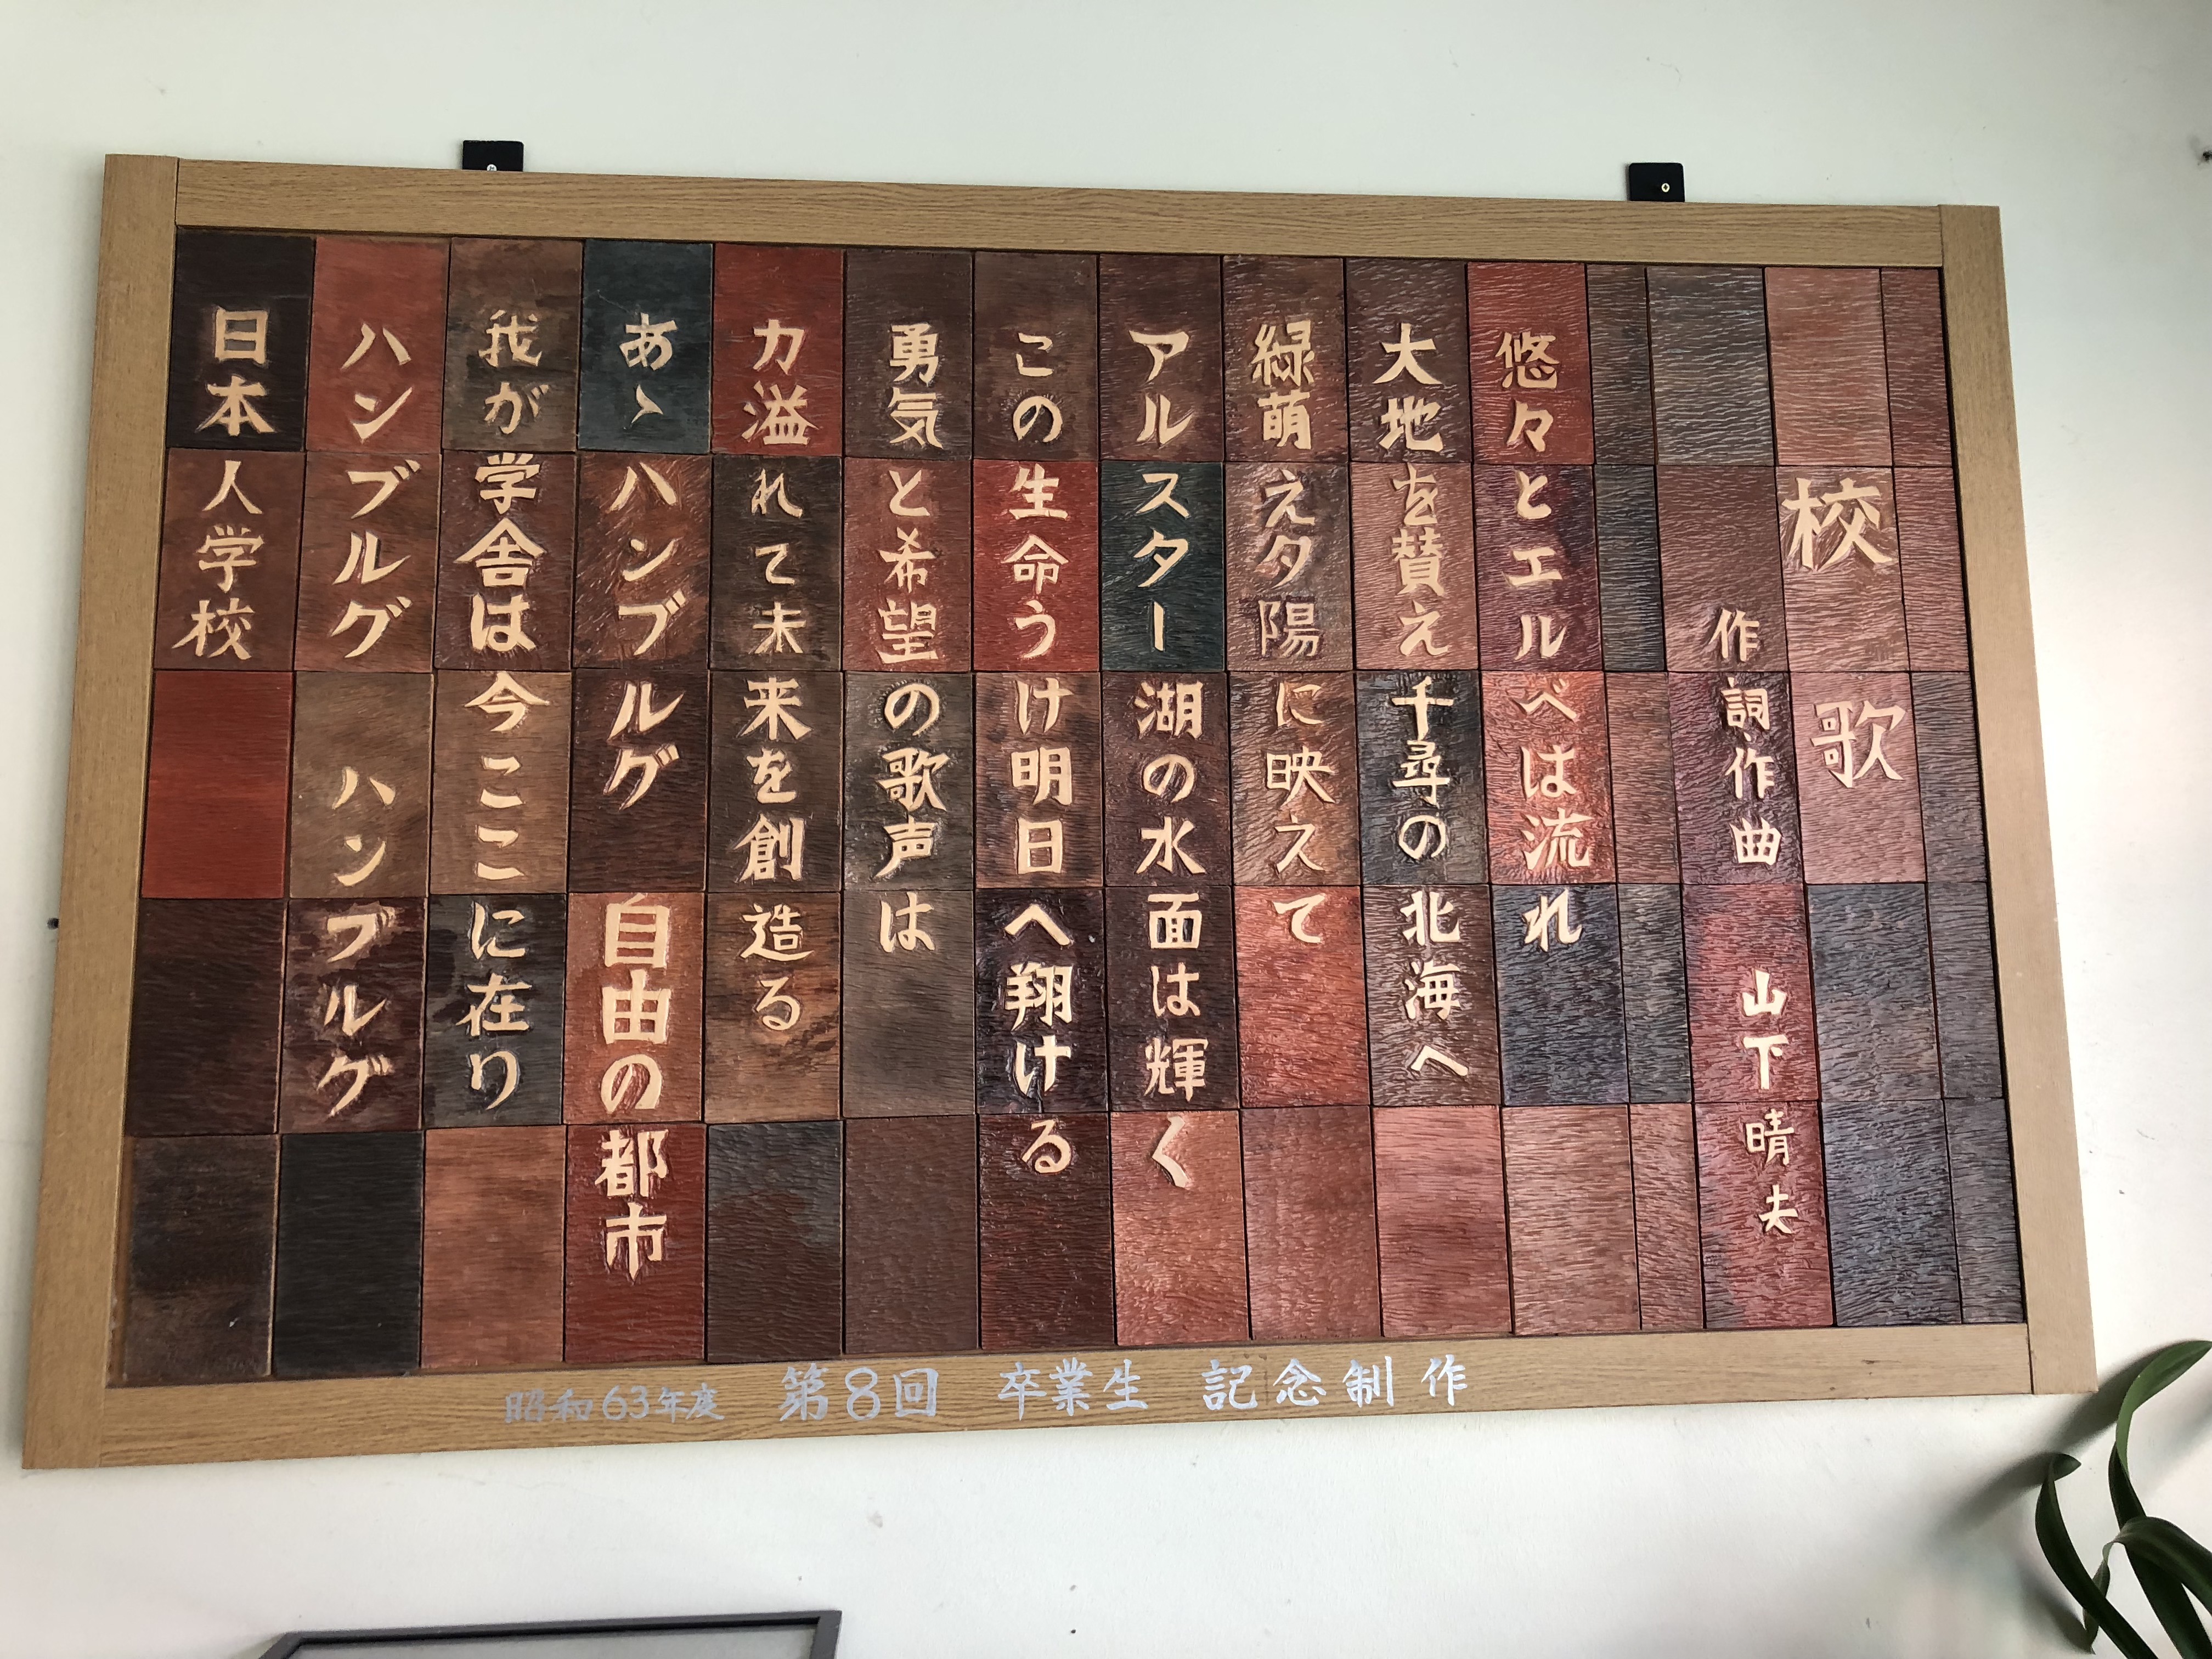 校歌
作詞・作曲 山下晴夫
悠々とエルベは流れ
大地を賛え千尋の北海へ
緑萌え夕陽に映えて
アルスター湖の水面は輝く
この生命うけ明日へ翔ける
勇気と希望の歌声は
力溢れて未来を創造る
あゝハンブルグ自由の都市
我が学舎は今ここに在り
ハンブルグ ハンブルグ
日本人学校
昭和63年度 第8回 卒業生 記念制作